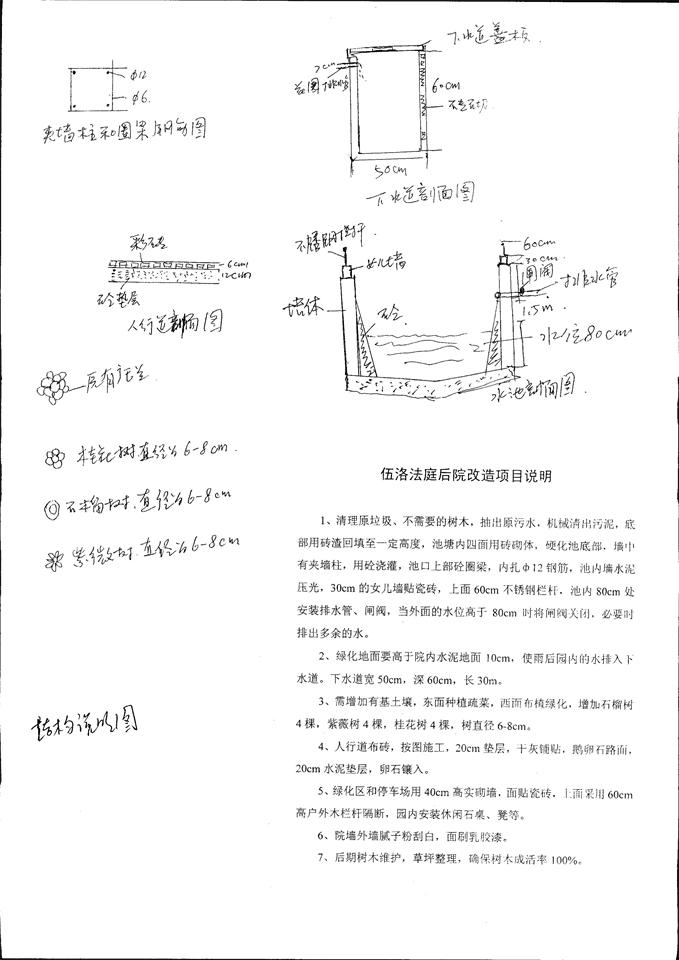 Φ12
Φ6.
夹墙柱和圈梁钢筋图
下水道盖板.
7cm
60cm
50cm
下水道剖面图
彩砖
6cm
12cm
砼垫层
人行道剖面图
不锈钢栏杆
女儿墙
墙体
砼.
60cm
30cm
闸阀
排水管
1.5m.
水位80cm
水池剖面图.
原有
桂花树直径为6-8cm.
石榴树.直径为6-8cm
紫薇树.直径为6-8cm
结构说明图
伍洛法庭后院改造项目说明
1、清理原垃圾、不需要的树木，抽出原污水，机械清出污泥，底
部用砖渣回填至一定高度，池塘内四面用砖砌体，硬化池底部，墙中
有夹墙柱，用砼浇灌，池口上部砼圈梁，内扎φ12钢筋，池内墙水泥
压光，30cm的女儿墙贴瓷砖，上面60cm不锈钢栏杆，池内80cm处
安装排水管、闸阀，当外面的水位高于 80cm 时将闸阀关闭，必要时
排出多余的水。
2、绿化地面要高于院内水泥地面 10cm，使雨后园内的水排入下
水道。下水道宽50cm，深60cm，长30m。
3、需增加有基土壤，东面种植疏菜，西面布植绿化，增加石榴树
4棵，紫薇树4棵，桂花树4棵，树直径6-8cm。
4、人行道布砖，按图施工，20cm 垫层，干灰铺贴，鹅卵石路面，
20cm水泥垫层，卵石镶入。
5、绿化区和停车场用40cm高实砌墙，面贴瓷砖，上面采用60cm
高户外木栏杆隔断，园内安装休闲石桌、凳等。
6、院墙外墙腻子粉刮白，面刷乳胶漆。
7、后期树木维护，草坪整理，确保树木成活率100%。